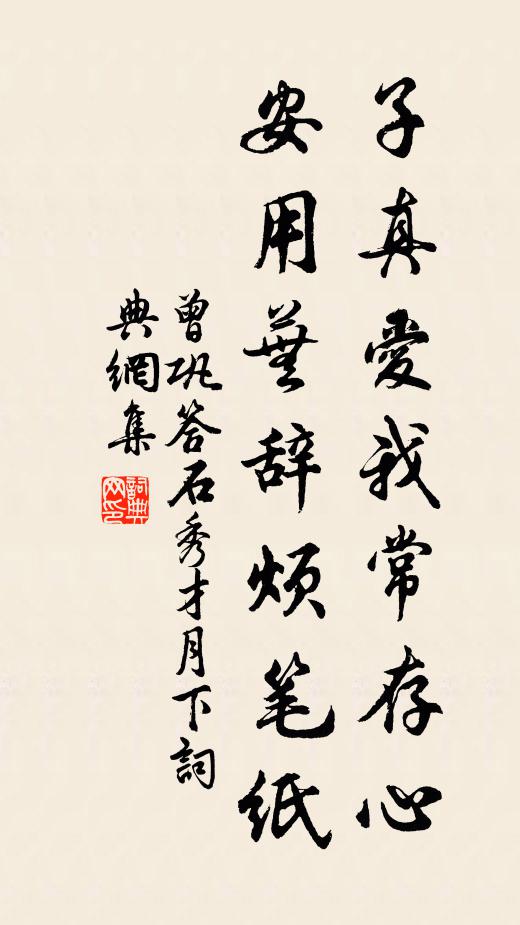 子真愛我常存心
安用蕪辞烦笔纸
曾巩答石秀才月下詞
典網集
詞典網印